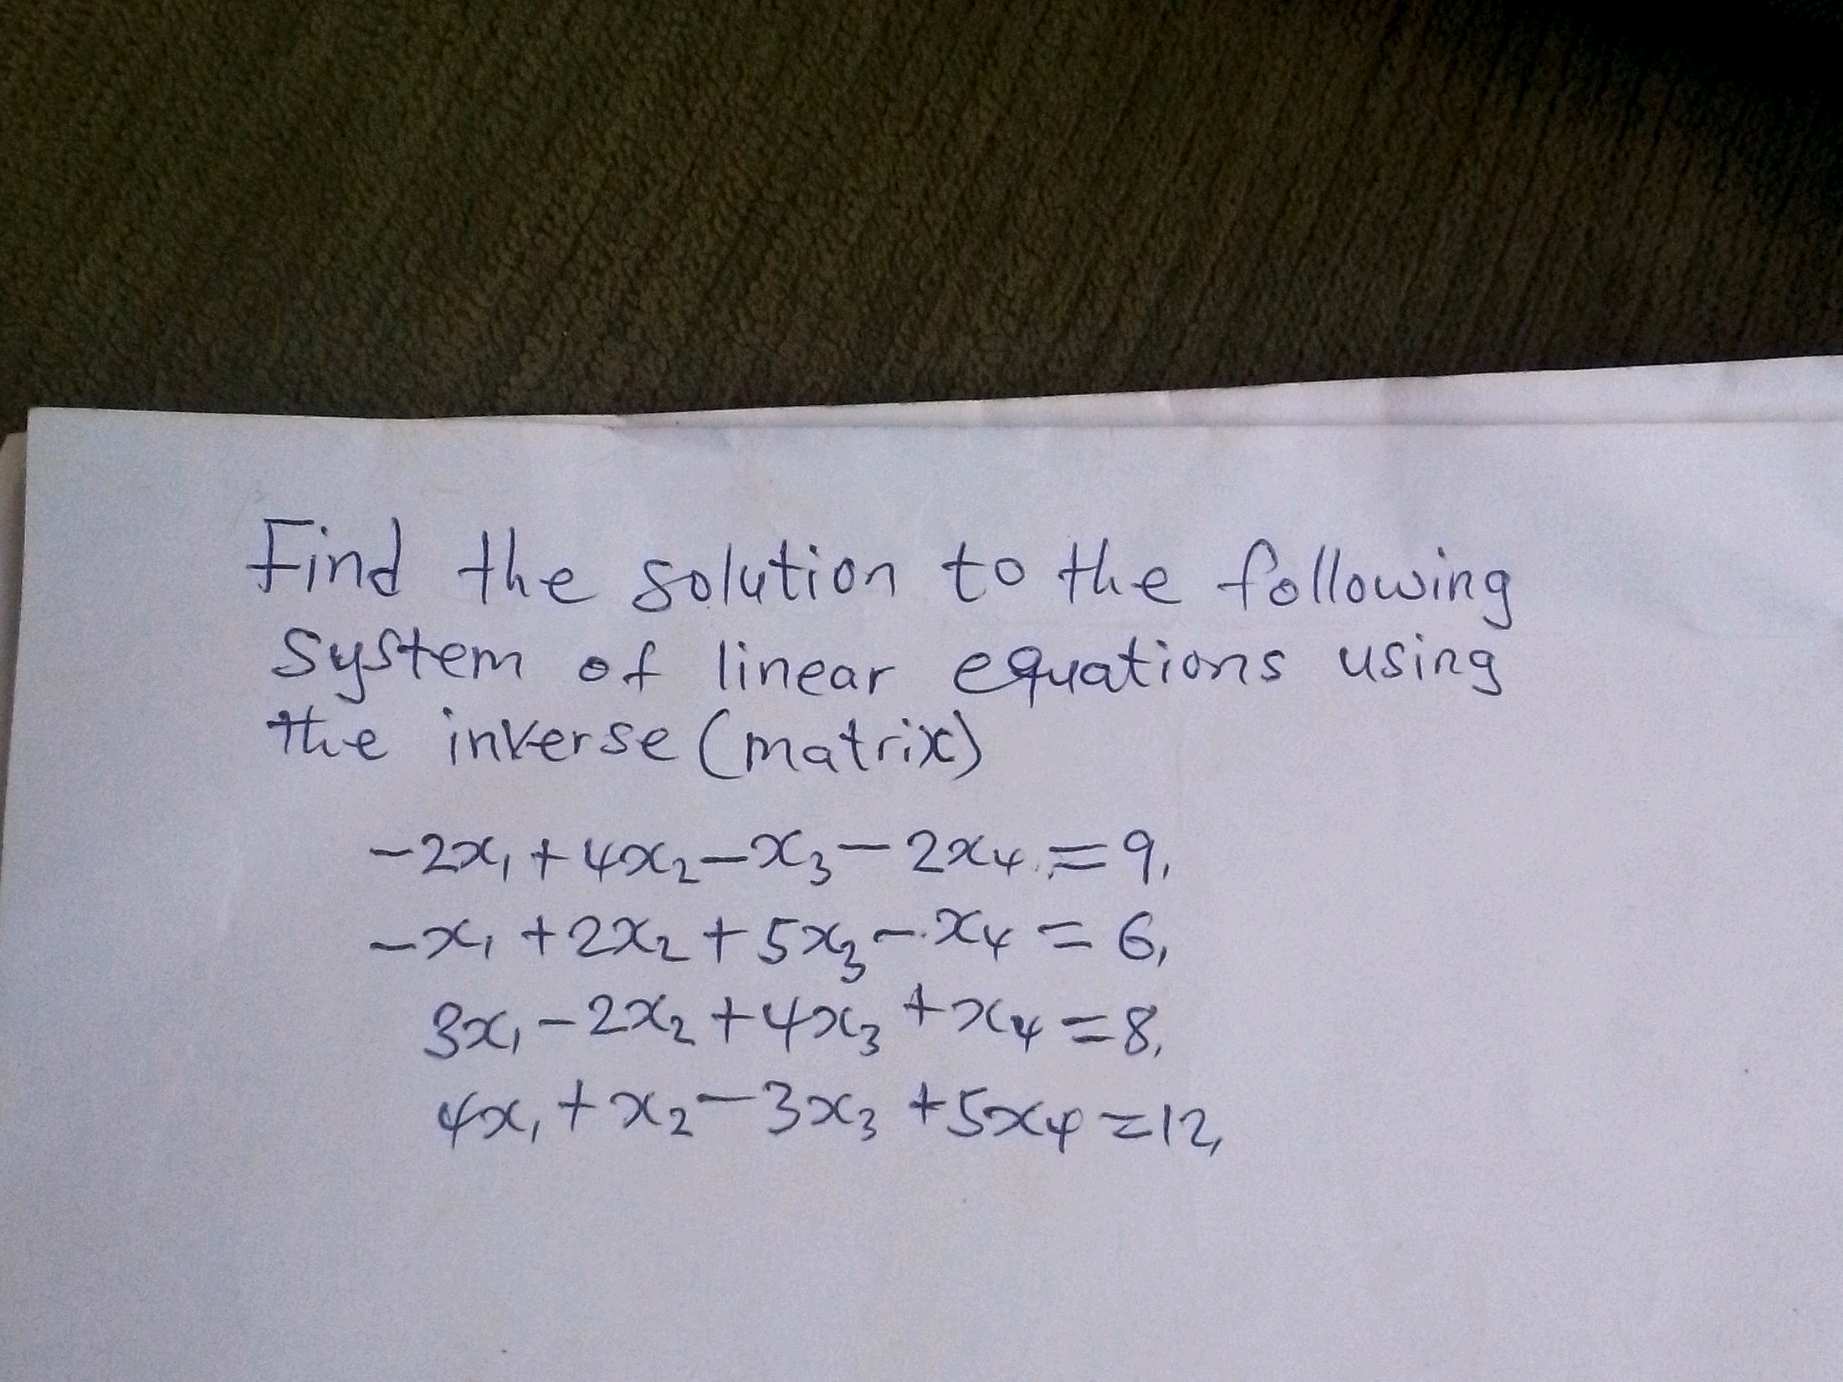 Find the solution to the following
system of linear equations using
the inverse (matrix)
-2x₁ + 4x₂ - x₃ - 2x₄ = 9,
-x₁ + 2x₂ + 5x₃ - x₄ = 6,
3x₁ - 2x₂ + 4x₃ + x₄ = 8,
4x₁ + x₂ - 3x₃ + 5x₄ = 12,